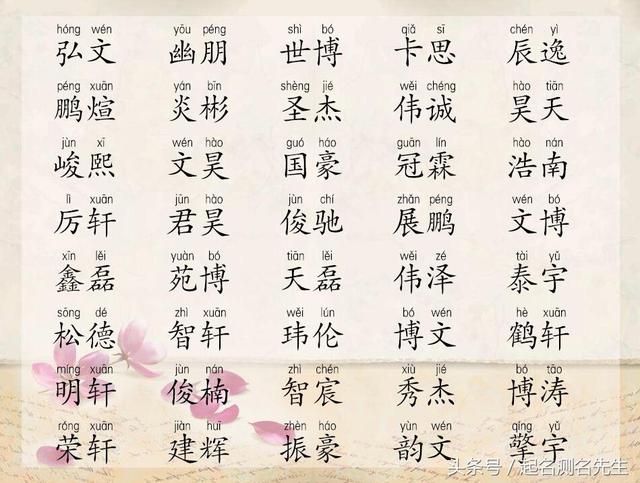 hóng wén yōu péng shì bó qiǎ sī chén yì
弘文 幽朋 世博 卡思 辰逸
péng xuān yán bīn shèng jié wěi chéng hào tiān
鹏煊 炎彬 圣杰 伟诚 昊天
jùn xī wén hào guó háo guān lín hào nán
峻熙 文昊 国豪 冠霖 浩南
lì xuān jūn hào jùn chí zhǎn péng wén bó
厉轩 君昊 俊驰 展鹏 文博
xīn lěi yuàn bó tiān lěi wěi zé tài yǔ
鑫磊 苑博 天磊 伟泽 泰宇
sōng dé zhì xuān wěi lún bó wén hè xuān
松德 智轩 玮伦 博文 鹤轩
míng xuān jùn nán zhì chén xiù jié bó tāo
明轩 俊楠 智宸 秀杰 博涛
róng xuān jiàn huī zhèn háo yùn wén qíng yǔ
荣轩 建辉 振豪 韵文 擎宇
头条号/起名测名先生